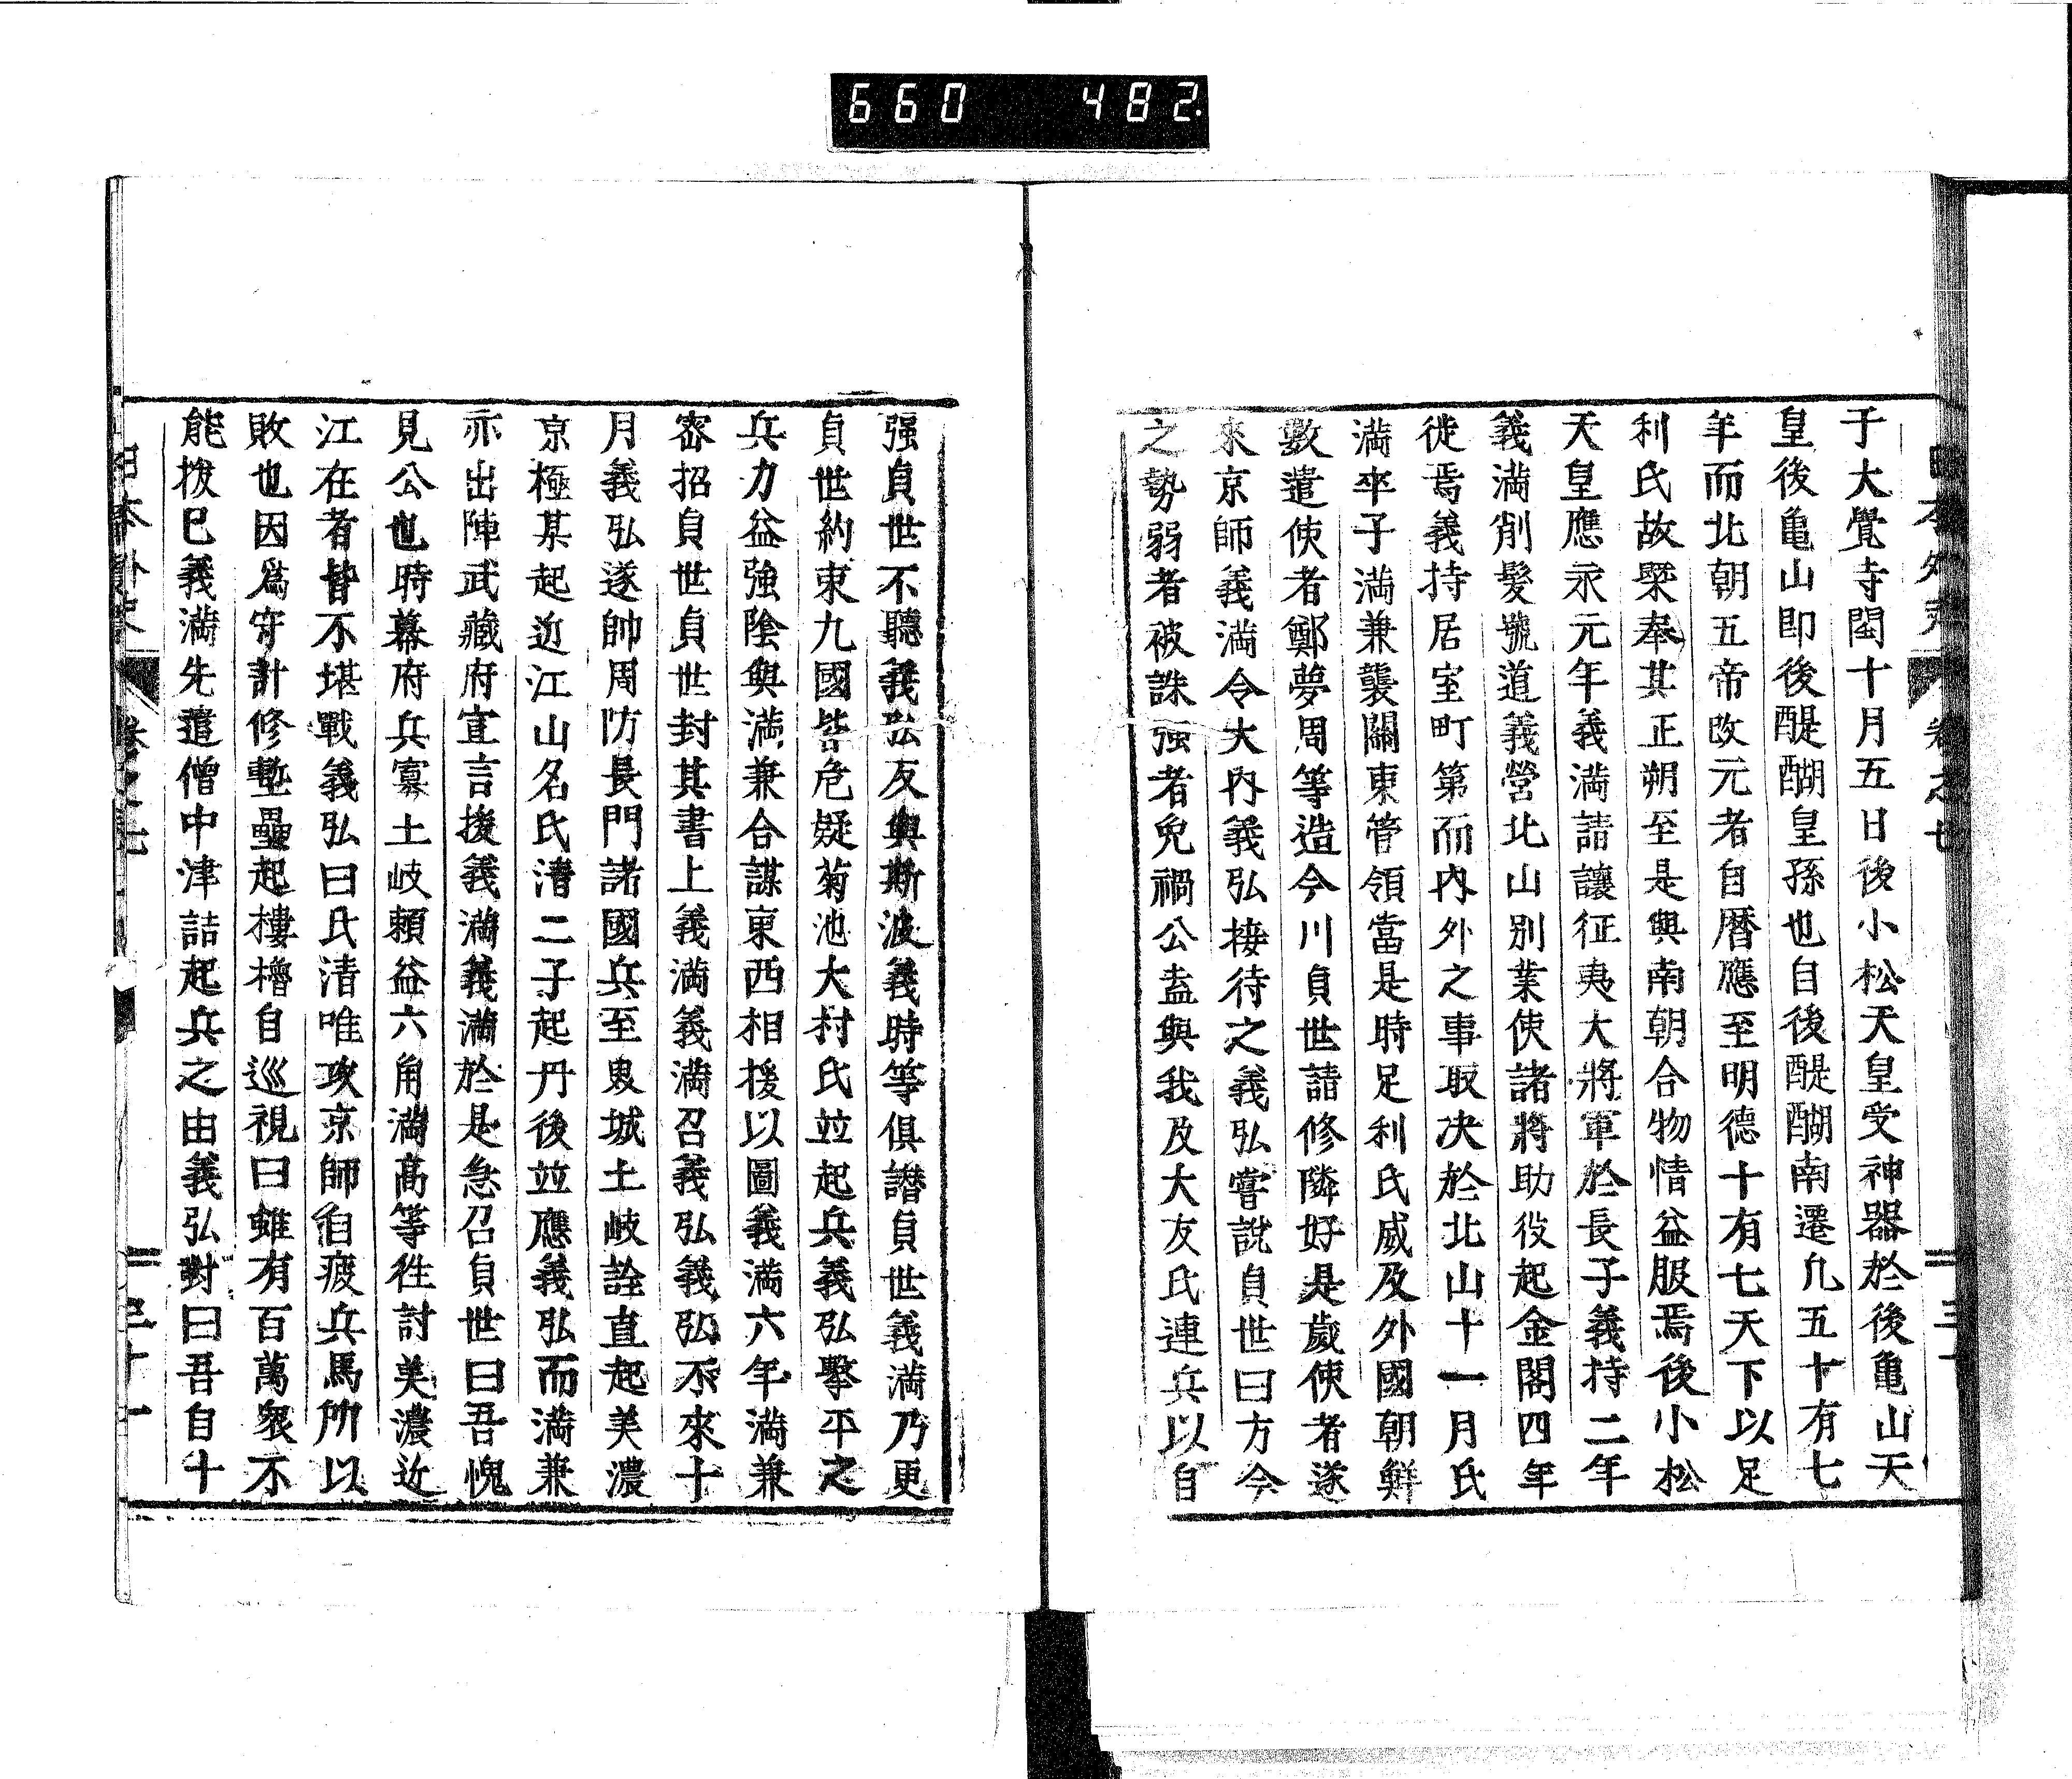 660 482.
于大覺寺閏十月五日後小松天皇受神器於後亀山天
皇後亀山即後醍醐皇孫也自後醍醐南遷凡五十有七
年而北朝五帝改元者自暦應至明德十有七天下以足
利氏故槩奉其正朔至是與南朝合物情益服焉後小松
天皇應永元年義満請讓征夷大將軍於長子義持二年
義満削髮號道義營北山別業使諸將助役起金閣四年
徙焉義持居室町第而内外之事取决於北山十一月氏
満卒子満兼襲關東管領當是時足利氏威及外國朝鮮
數遣使者鄭夢周等造今川貞世請修隣好是歲使者遂
來京師義満令大内義弘接待之義弘嘗說貞世曰方今
之勢弱者被誅强者免禍公盍與我及大友氏連兵以自
强貞世不聽義弘反與斯波義時等俱譖貞世義満乃更
貞世約束九國皆危疑菊池大村氏並起兵義弘擊平之
兵力益強陰與満兼合謀東西相援以圖義満六年満兼
密招貞世貞世封其書上義満義満召義弘義弘不來十
月義弘遂帥周防長門諸國兵至泉城土岐詮直起美濃
京極某起近江山名氏清二子起丹後並應義弘而満兼
亦出陣武藏府宣言援義満義満於是急召貞世曰吾愧
見公也時幕府兵寡土岐頼益六角満高等徃討美濃近
江在者皆不堪戰義弘曰氏清唯攻京師自疲兵馬所以
敗也因爲守計修塹壘起樓櫓自巡視曰雖有百萬衆不
能拔已義満先遣僧中津詰起兵之由義弘對曰吾自十
日本外史 卷之七 三十一